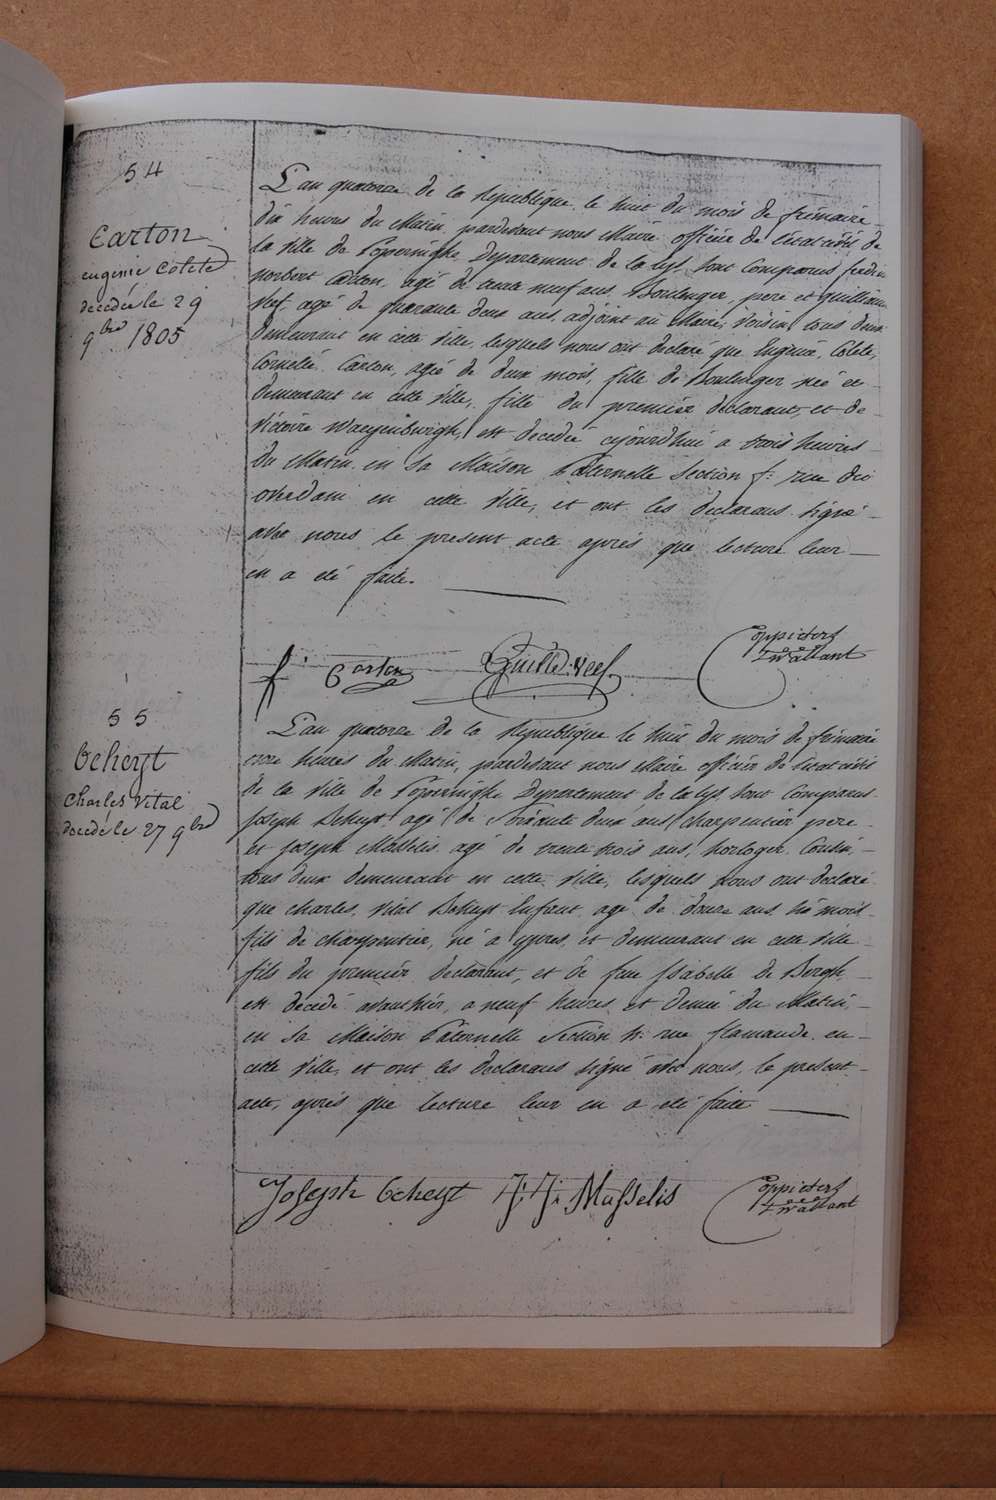 54
Carton
eugenie Colete
decedée le 29
9bre 1805
L'an quatorze de la Republique le huit du mois de frimaire
dix heures du Matin, pardevant nous Maire officier de l'état civil de
la ville de Poperinghe Departement de la Lys, sont comparus ferdin
norbert Carton, agé de neuf ans, Boulenger, pere et guilliaum
Neef, agé de quarante deux ans, adjoint au Maire, voisin tous deux
demeurant en cette ville, lesquels nous ont declaré que Eugenie, Colete,
Cornelie Carton, agée de deux mois, fille de Boulenger neé et
demeurant en cette ville, fille du premier declarant, et de
Victoire est decedée cejourdhui a trois heures
du Matin en sa Maison Paternelle Section f: rue de
overdam en cette Ville, et ont les declarans signé
avec nous le present acte aprés que lecture leur
en a eté faite.
f Carton Guille: Neef Coppieters
Twallant
55
Beheyt
Charles Vital
decedé le 27 9bre
L'an quatorze de la Republique le huit du mois de frimaire
onze heures du Matin, pardevant nous Maire officier de l'état civil
de la Ville de Poperinghe Departement de la Lys, sont comparus
Joseph Beheyt agé de soixante deux ans charpentier pere
et Joseph Masselis agé de trente trois ans, horloger Cousin,
tous deux demeurant en cette ville, lesquels nous ont declaré
que charles, Vital Beheyt Enfant agé de douze ans six mois
fils de charpentier, né a ypres, et demeurant en cette ville
fils du premier declarant, et de feue Isabelle de Bergh
est decedé avanthier, a neuf heures et demie du Matin,
en sa Maison Paternelle Section rue flamande en
cette Ville, et ont les declarans signé avec nous, le present
acte, aprés que lecture leur en a eté faite
Joseph Beheyt J: J: Masselis Coppieters
Twallant